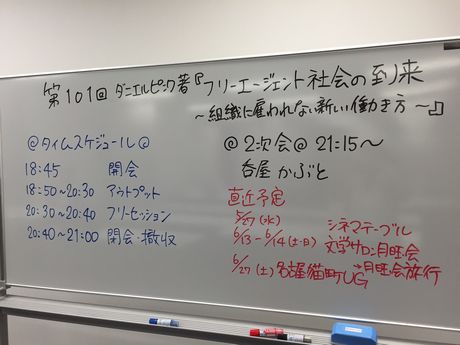 第101回 ダニエルピンク著『フリーエージェント社会の到来
～組織に雇われない新しい働き方～』
@タイムスケジュール@
18:45 開会
18:50～20:30 アウトプット
20:30～20:40 フリーセッション
20:40～21:00 閉会・撤収
@2次会@ 21:15～
呑屋 かぶと
直近予定
5/27(水) シネマテーブル
6/13-6/14(土・日) 文学サロン月曜会
6/27(土) 名古屋猫町UG
→月曜会旅行